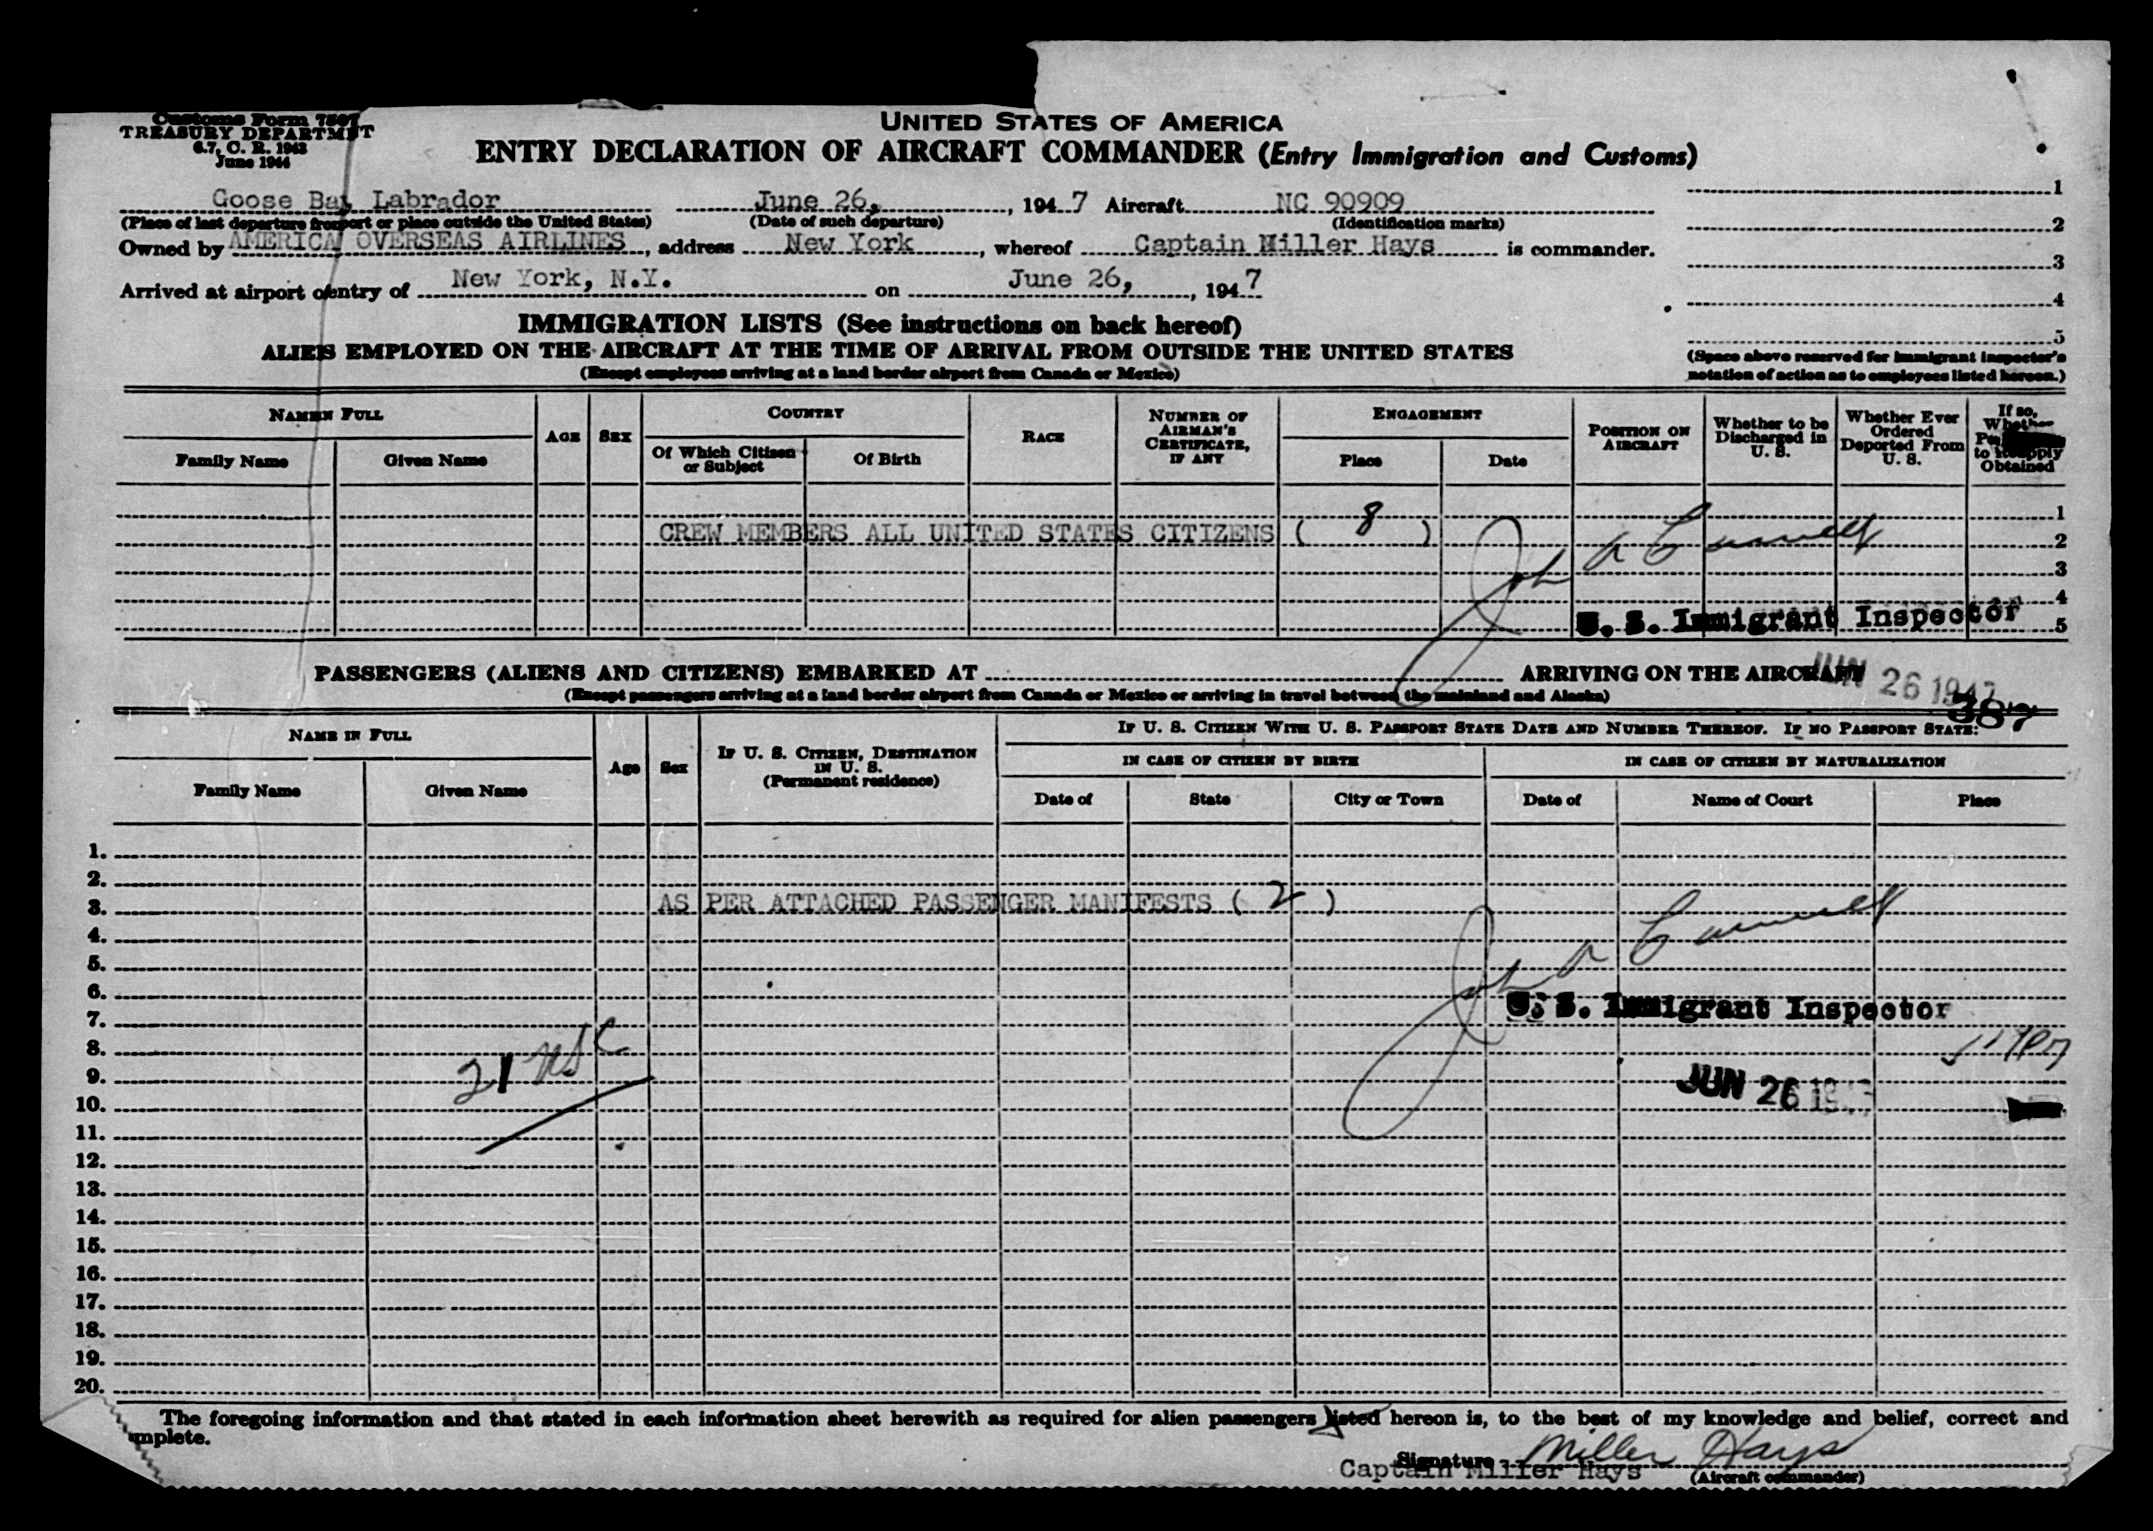 Customs Form 7507
TREASURY DEPARTMENT
6.7, C. R. 1943
June 1944
UNITED STATES OF AMERICA
ENTRY DECLARATION OF AIRCRAFT COMMANDER (Entry Immigration and Customs)
Goose Bay, Labrador June 26, 1947 Aircraft NC 90909
(Place of last departure from port or place outside the United States) (Date of such departure) (Identification marks)
Owned by AMERICAN OVERSEAS AIRLINES, address New York, whereof Captain Miller Hays is commander.
Arrived at airport of entry of New York, N.Y. on June 26, 1947
1
2
3
4
5
(Space above reserved for immigrant inspector's
notation of action as to employees listed hereon.)
IMMIGRATION LISTS (See instructions on back hereof)
ALIENS EMPLOYED ON THE AIRCRAFT AT THE TIME OF ARRIVAL FROM OUTSIDE THE UNITED STATES
(Except employees arriving at a land border airport from Canada or Mexico)
NAME IN FULL
Family Name
Given Name
AGE
SEX
COUNTRY
Of Which Citizen or Subject
Of Birth
RACE
NUMBER OF AIRMAN'S CERTIFICATE, IF ANY
ENGAGEMENT
Place
Date
POSITION ON AIRCRAFT
Whether to be Discharged in U. S.
Whether Ever Ordered Deported From U. S.
If so, Whether
to Reapply Obtained
1
CREW MEMBERS ALL UNITED STATES CITIZENS ( 8 )
2
3
4
U. S. Immigrant Inspector
5
PASSENGERS (ALIENS AND CITIZENS) EMBARKED AT ARRIVING ON THE AIRCRAFT
JUN 26 1947
(Except passengers arriving at a land border airport from Canada or Mexico or arriving in travel between the mainland and Alaska)
387
NAME IN FULL
Family Name
Given Name
Age
Sex
IF U. S. CITIZEN, DESTINATION IN U. S.
(Permanent residence)
IF U. S. CITIZEN WITH U. S. PASSPORT STATE DATE AND NUMBER THEREOF. IF NO PASSPORT STATE:
IN CASE OF CITIZEN BY BIRTH
Date of
State
City or Town
IN CASE OF CITIZEN BY NATURALIZATION
Date of
Name of Court
Place
1.
2.
3. AS PER ATTACHED PASSENGER MANIFESTS ( 2 )
4.
5.
6.
U. S. Immigrant Inspector
7.
8.
21 USC
9.
JUN 26 194
10.
11.
12.
13.
14.
15.
16.
17.
18.
19.
20.
The foregoing information and that stated in each information sheet herewith as required for alien passengers listed hereon is, to the best of my knowledge and belief, correct and
complete.
Signature Miller Hays
Captain Miller Hays (Aircraft commander)